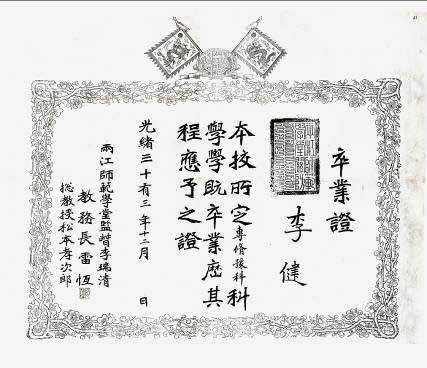 41
卒業證
李健
本校所定專修豫科科
學學既卒業歷其
程應予之證
光緒三十有三年十二月 日
兩江師範學堂監督李瑞清
教務長雷恆
総教授松本孝次郎